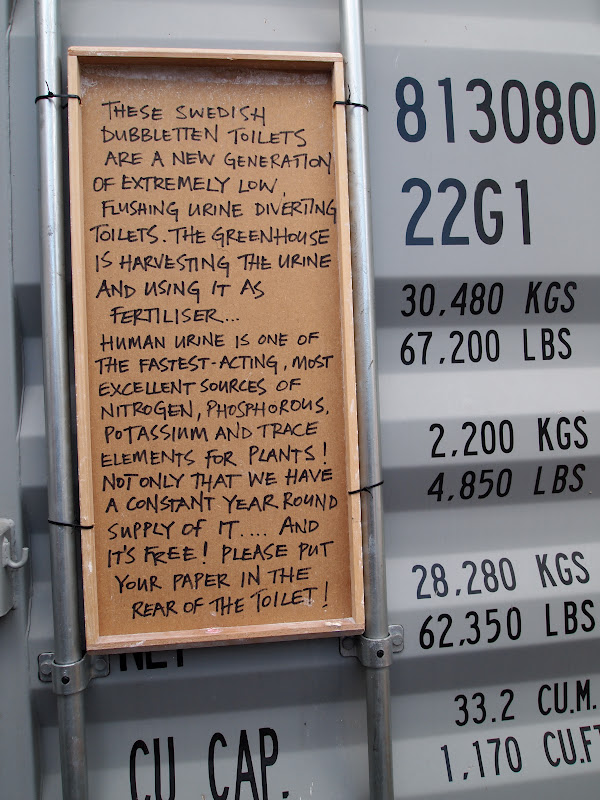 THESE SWEDISH
DUBBLETTEN TOILETS
ARE A NEW GENERATION
OF EXTREMELY LOW,
FLUSHING URINE DIVERTING
TOILETS. THE GREENHOUSE
IS HARVESTING THE URINE
AND USING IT AS
FERTILISER...
HUMAN URINE IS ONE OF
THE FASTEST-ACTING, MOST
EXCELLENT SOURCES OF
NITROGEN, PHOSPHOROUS,
POTASSIUM AND TRACE
ELEMENTS FOR PLANTS!
NOT ONLY THAT WE HAVE
A CONSTANT YEAR ROUND
SUPPLY OF IT.... AND
IT'S FREE! PLEASE PUT
YOUR PAPER IN THE
REAR OF THE TOILET!
813080
22G1
30,480 KGS
67,200 LBS
2,200 KGS
4,850 LBS
28,280 KGS
62,350 LBS
NET
33.2 CU.M.
CU. CAP.
1,170 CU.FT